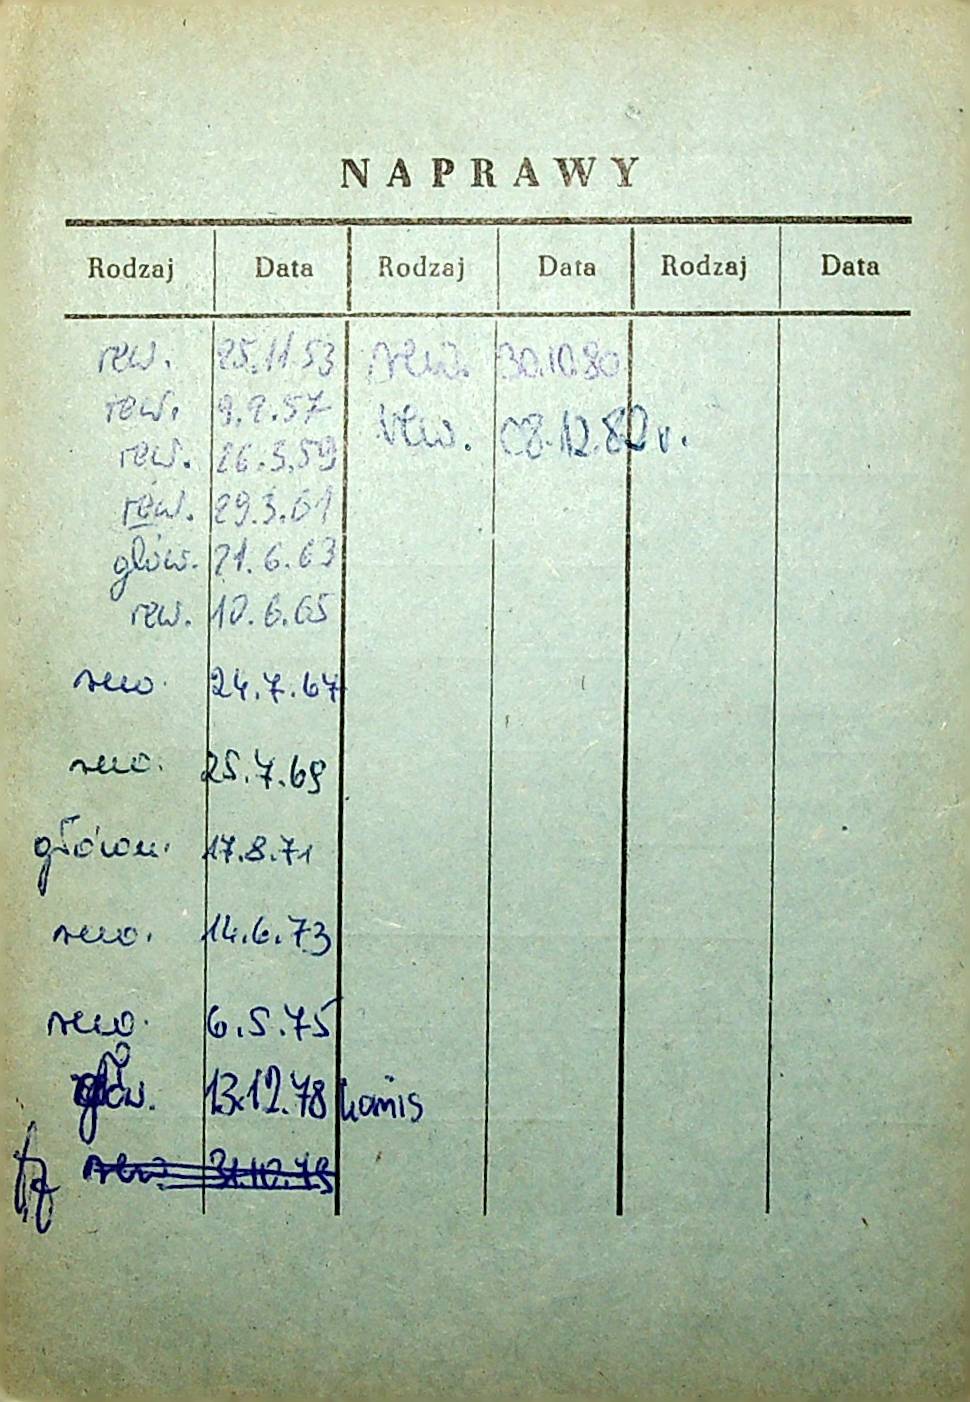 NAPRAWY
Rodzaj Data Rodzaj Data Rodzaj Data
rew. 25.11.53
rew. 9.2.57
rew. 26.3.59
rew. 29.3.61
głów. 21.6.63
rew. 10.6.65
rew. 24.7.67
rew. 25.7.69
główn. 17.8.71
rew. 14.6.73
rew. 6.5.75
głów. 13.12.78 komis
rew. 31.10.79
rew. 30.10.80
rew. 08.12.82 r.